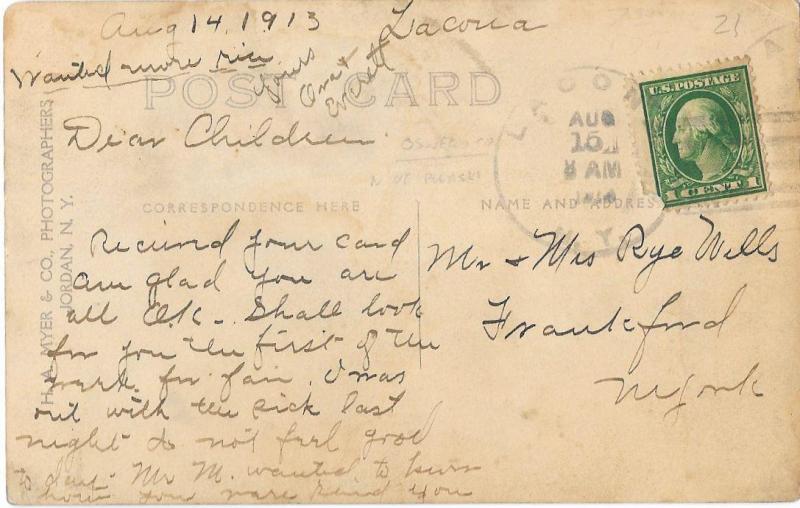 Aug 14, 1913 Lacona
21
Wanted more rice
Yours
Ona &
Everett
POST CARD
Dear Children
OSWEGO CO
N OF PULASKI
LACONA
AUG
15
8 AM
N.Y.
U.S. POSTAGE
1 CENT 1
CORRESPONDENCE HERE
NAME AND ADDRESS
H. A. MYER & CO., PHOTOGRAPHERS
JORDAN, N. Y.
Received your card
am glad you are
all O.K. Shall look
for you the first of the
week for fair. I was
out with the sick last
night do not feel good
to day. Mr M. wanted to
how you were and you
Mr & Mrs Rye Wells
Frankford
N York